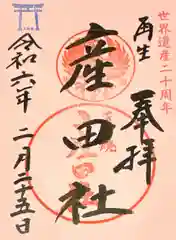 世界遺産二十周年
再生
奉拝
産田社
令和六年
二月二十五日